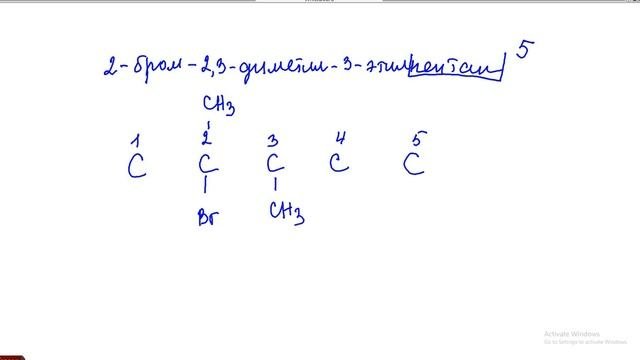 2-бром-2,3-диметил-3-этилпентан 5
CH3
1 2 3 4 5
C C C C C
Br CH3
Activate Windows
Go to Settings to activate Windows.